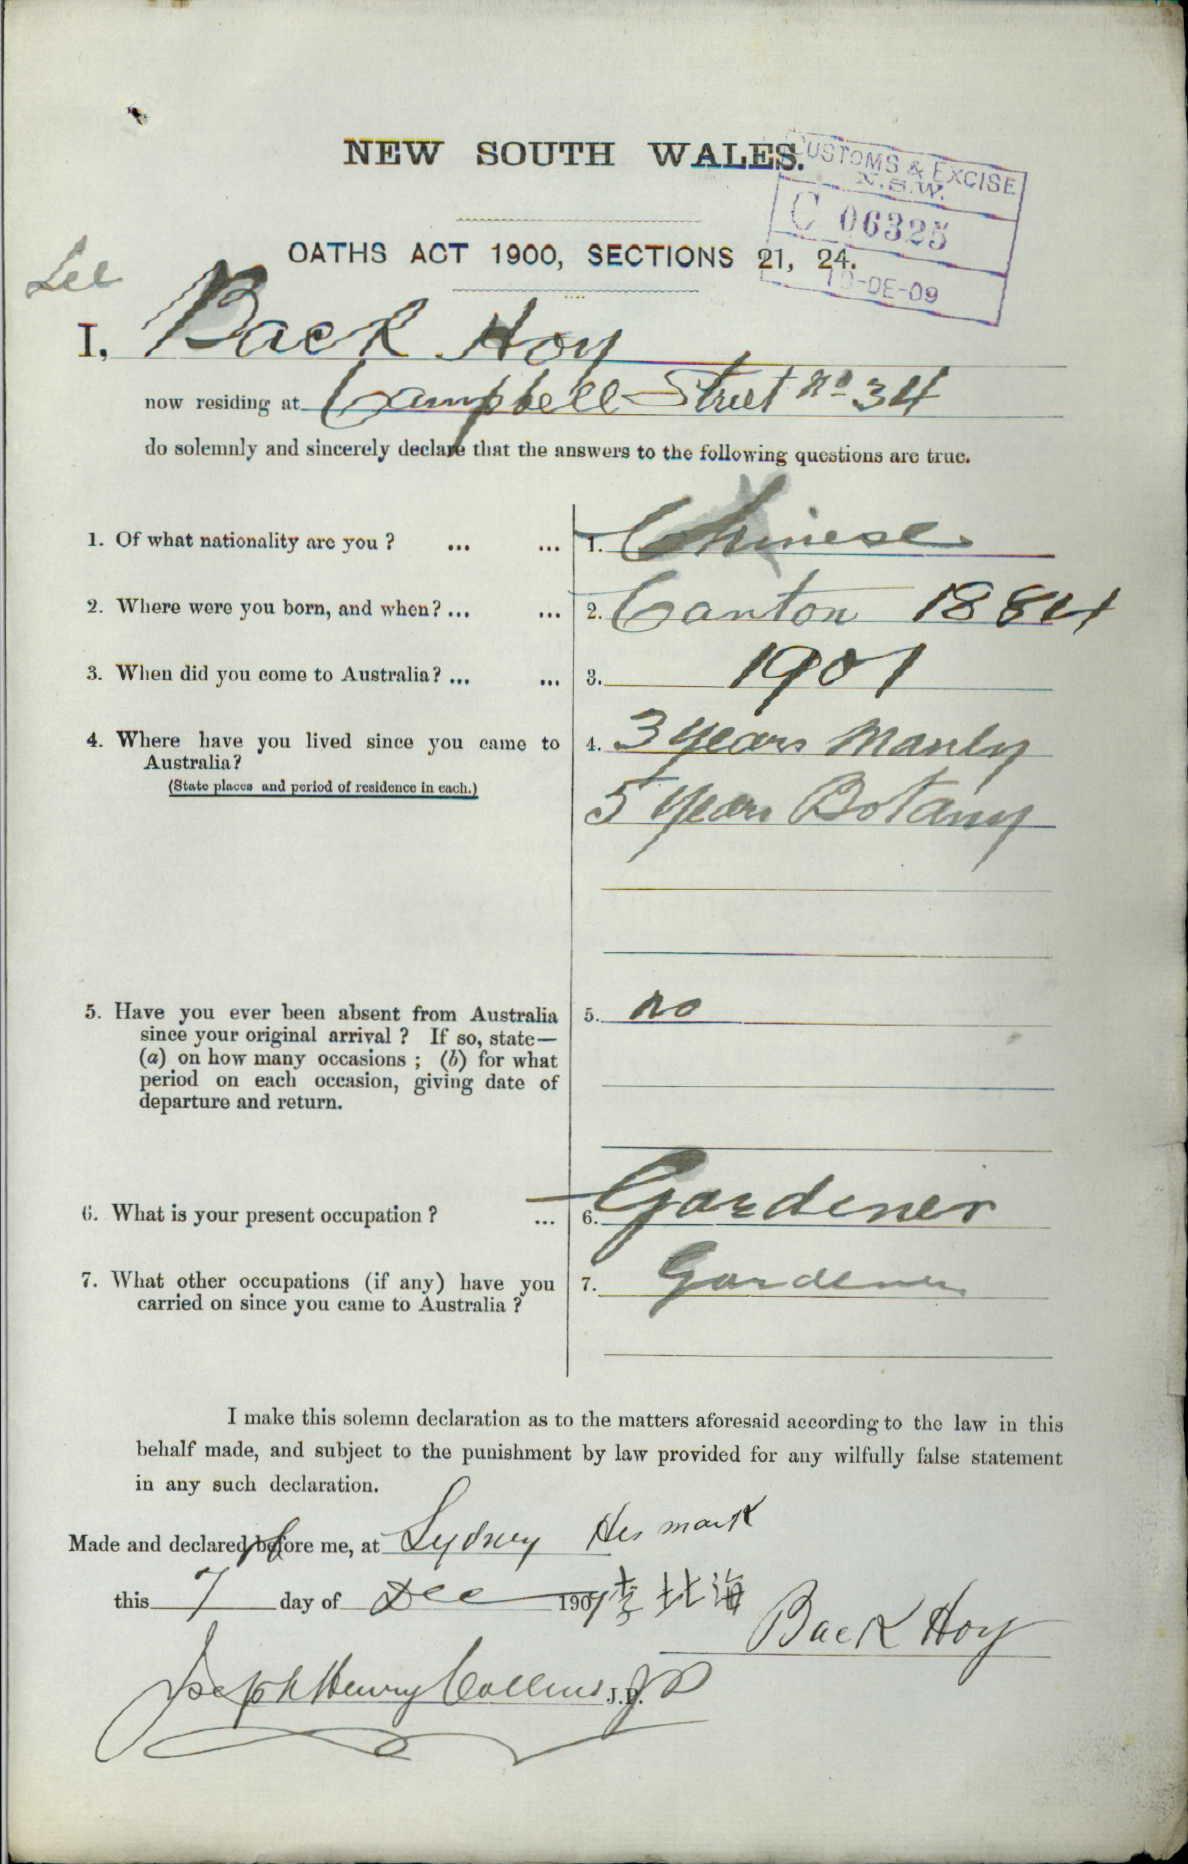 NEW SOUTH WALES.
CUSTOMS & EXCISE
N.S.W.
C 06325
10-DE-09
OATHS ACT 1900, SECTIONS 21, 24.
Lee
I, Back Hoy
now residing at Campbell Street No 34
do solemnly and sincerely declare that the answers to the following questions are true.
1. Of what nationality are you ? ... ... 1. Chinese
2. Where were you born, and when? ... ... 2. Canton 1884
3. When did you come to Australia? ... ... 3. 1901
4. Where have you lived since you came to 4. 3 years Manly
Australia?
(State places and period of residence in each.)
5 years Botany
5. Have you ever been absent from Australia 5. no
since your original arrival ? If so, state—
(a) on how many occasions ; (b) for what
period on each occasion, giving date of
departure and return.
6. What is your present occupation ? ... 6. Gardener
7. What other occupations (if any) have you 7. Gardener
carried on since you came to Australia ?
I make this solemn declaration as to the matters aforesaid according to the law in this
behalf made, and subject to the punishment by law provided for any wilfully false statement
in any such declaration.
Made and declared before me, at Sydney His mark
this 7 day of Dec 1909 李北海
Back Hoy
Joseph Henry Collins J.P. JP